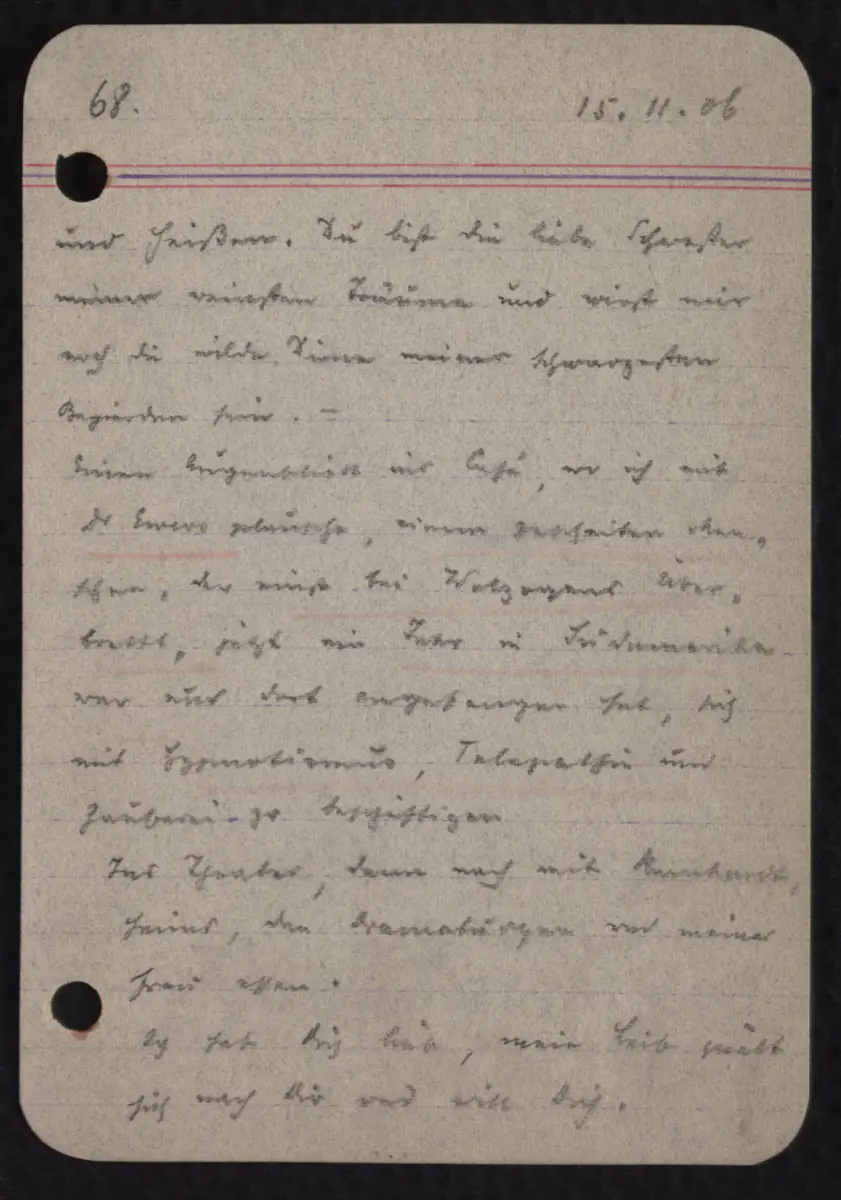 68.
15. 11. 06
und heißen. Du bist die liebe Schwester
meiner reinsten Träume und wirst mir
noch die wilde Dirne meiner schwarzesten
Begierden sein. –
Einen Augenblick ins Café, wo ich mit
Dr Ewers plausche, einem gescheiten Men-
schen, der einst bei Wolzogens Über-
brettl, jetzt ein Jahr in Südamerika
war und dort angefangen hat, sich
mit Hypnotismus, Telepathie und
Zauberei zu beschäftigen
Ins Theater, dann noch mit Reinhardt,
Heims, den Dramaturgen und meiner
Frau essen.
Ich hab Dich lieb, mein Leib quält
sich nach Dir und will Dich.